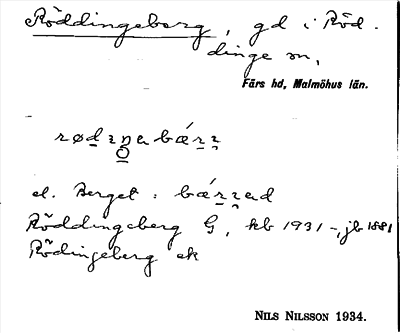 Röddingeberg, gd i Röd-
dinge sn,
Färs hd, Malmöhus län.
el. Berget :
Röddingeberg G, kb 1931 -, jb 1881
Rödingeberg ek
NILS NILSSON 1934.